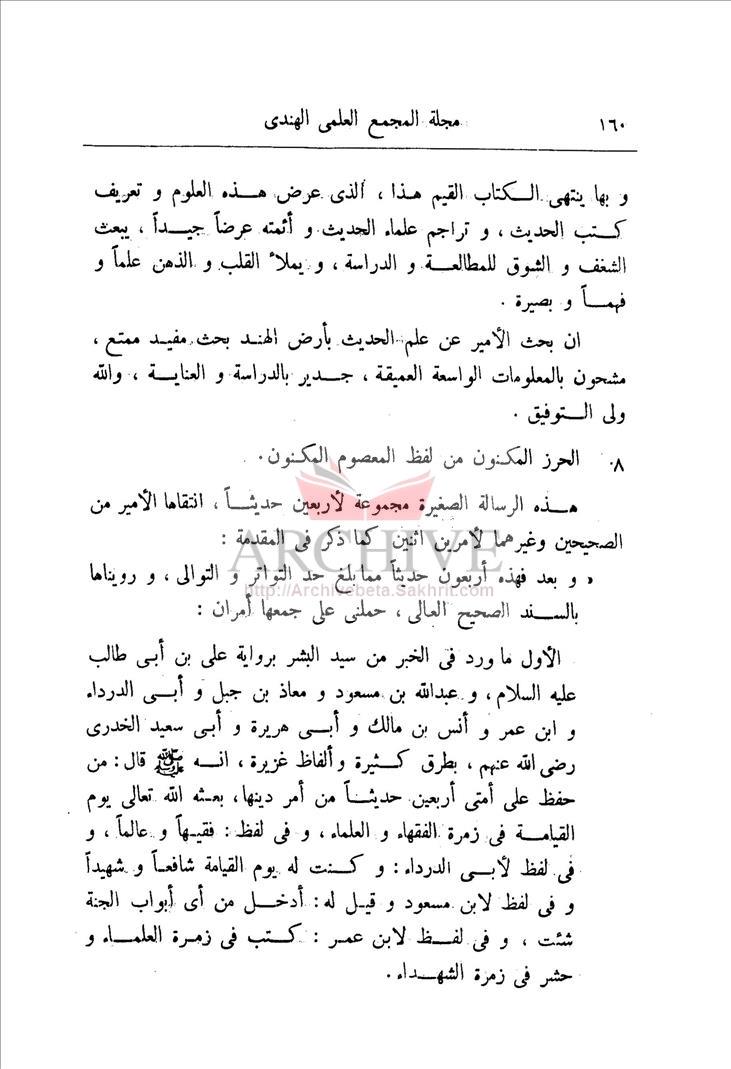 ١٦٠ مجلة المجمع العلمى الهندى
و بها ينتهى الكتاب القيم هذا ، الذى عرض هذه العلوم و تعريف
كتب الحديث ، و تراجم علماء الحديث و أئمته عرضاً جيداً ، يبعث
الشغف و الشوق للمطالعة و الدراسة ، و يملأ القلب و الذهن علماً و
فهماً و بصيرة .
ان بحث الأمير عن علم الحديث بأرض الهند بحث مفيد ممتع ،
مشحون بالمعلومات الواسعة العميقة ، جدير بالدراسة و العناية ، والله
ولى التوفيق .
٨. الحرز المكنون من لفظ المعصوم المكنون .
هذه الرسالة الصغيرة مجموعة لأربعين حديثاً ، انتقاها الأمير من
الصحيحين وغيرهما لأمرين اثنين كما ذكر فى المقدمة :
ARCHIVE
« و بعد فهذه أربعون حديثاً مما بلغ حد التواتر و التوالى ، و رويناها
http://Archivebeta.Sakhrit.com
بالسند الصحيح العالى ، حملنى على جمعها أمران :
الأول ما ورد فى الخبر من سيد البشر برواية على بن أبى طالب
عليه السلام ، و عبدالله بن مسعود و معاذ بن جبل و أبى الدرداء
و ابن عمر و أنس بن مالك و أبى هريرة و أبى سعيد الخدرى
رضى الله عنهم ، بطرق كثيرة و ألفاظ غزيرة ، انه ﷺ قال : من
حفظ على أمتى أربعين حديثاً من أمر دينها ، بعثه الله تعالى يوم
القيامة فى زمرة الفقهاء و العلماء ، و فى لفظ : فقيهاً و عالماً ، و
فى لفظ لأبى الدرداء : و كنت له يوم القيامة شافعاً و شهيداً
و فى لفظ لابن مسعود و قيل له : أدخل من أى أبواب الجنة
شئت ، و فى لفظ لابن عمر : كتب فى زمرة العلماء و
حشر فى زمرة الشهداء .